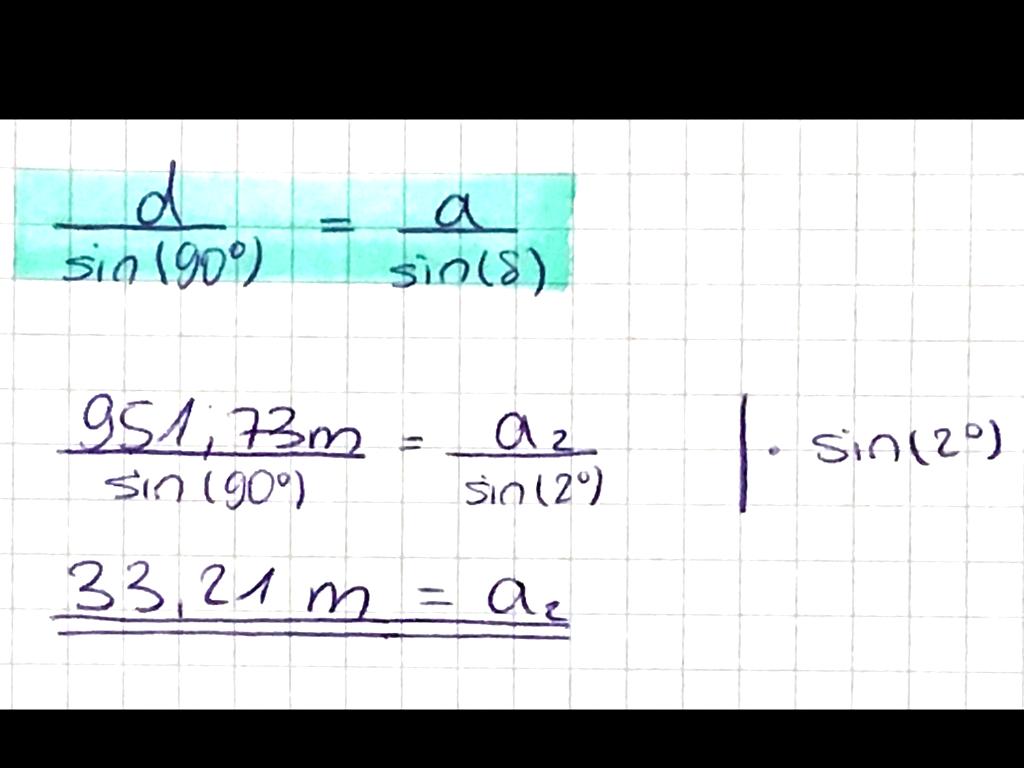 d/sin(90°) = a/sin(δ)
951,73m/sin(90°) = a₂/sin(2°) | · sin(2°)
33,21 m = a₂